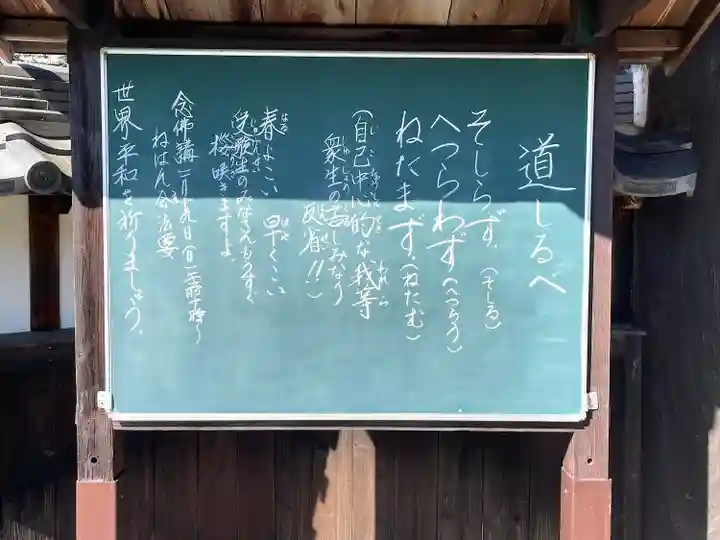 道しるべ
そしらず、(そしる)
へつらわず(へつらう)
ねたまず、(ねたむ)
(自己中心的な我等
衆生の苦しみなり
反省!!)
春よこい 早くこい
受験生のみなさんもうすぐ
桜咲きますよ
念佛講二月十九日(日)
ねはん会法要
世界平和を祈りましょう、